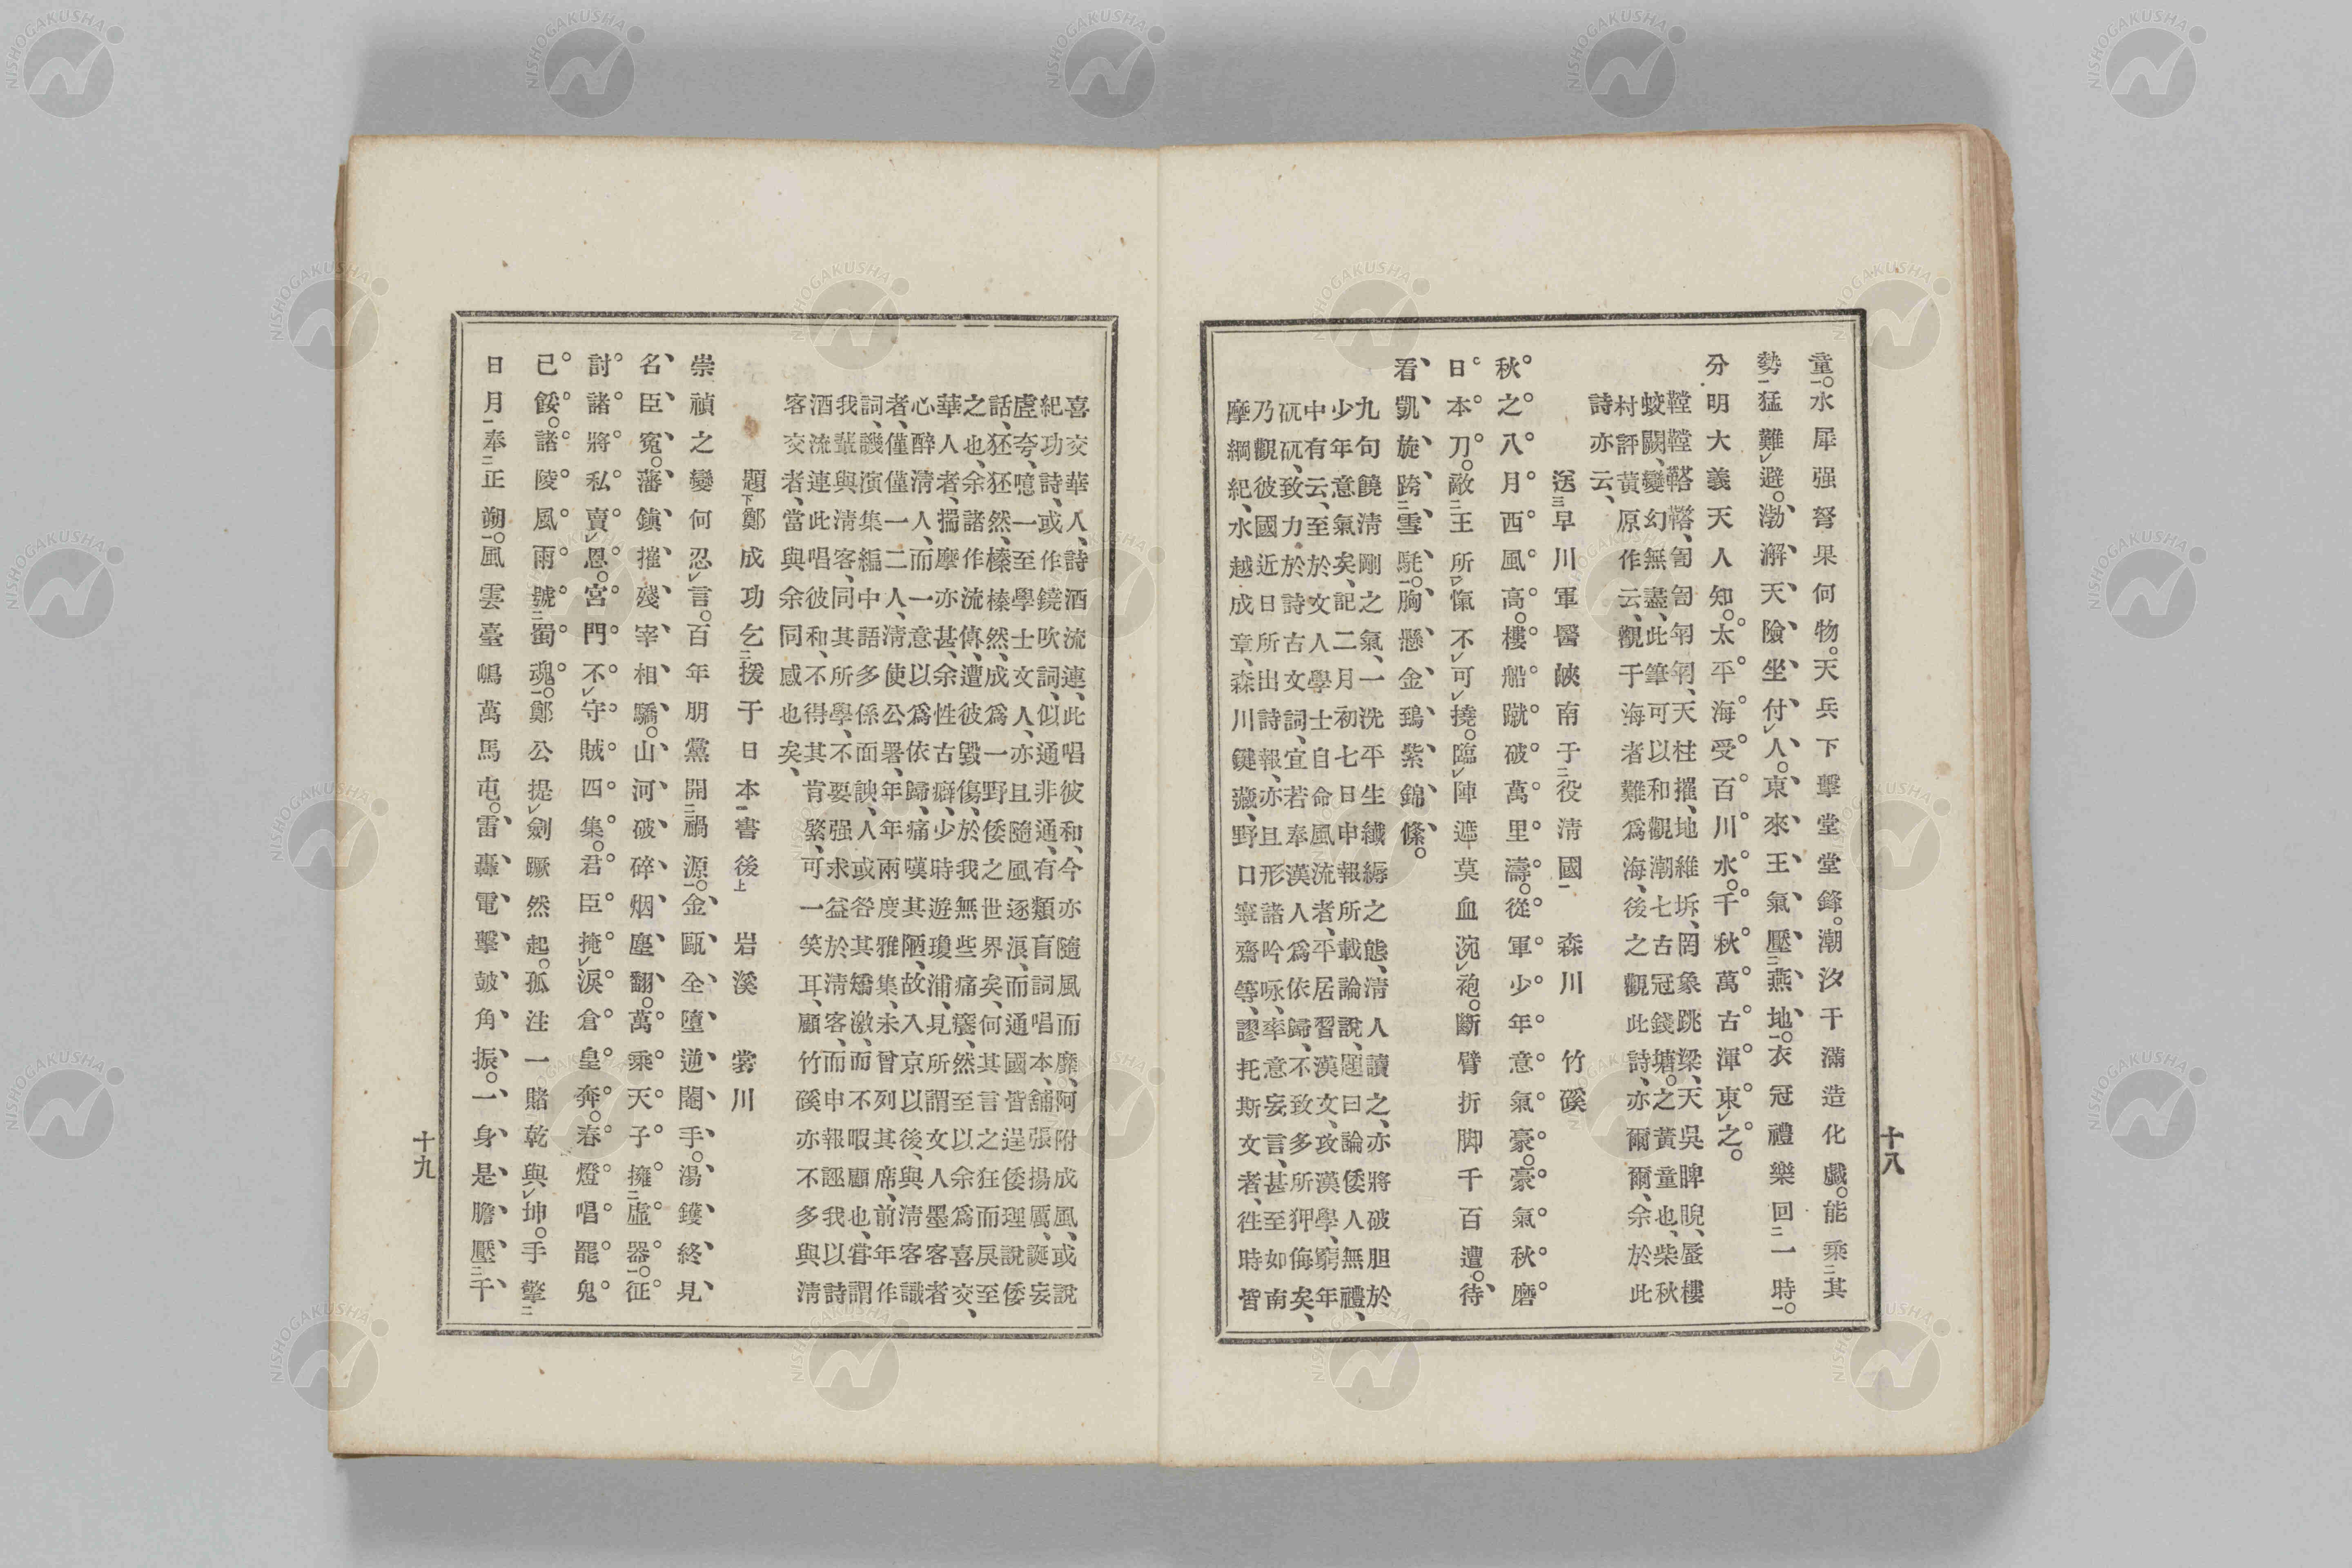 童。水犀强弩果何物。天兵下擊堂堂鋒。潮汐干滿造化戲。能乘其
勢猛難避。渤澥天險坐付人。東來王氣壓燕地。衣冠禮樂回一時。
分明大義天人知。太平海受百川水。千秋萬古渾東之。
鞺鞺鞳鞳、匒匒匌匌、天柱摧、地維坼、罔象跳梁、天吳睥睨、蜃樓
蛟闕、變幻無盡、此筆可以和觀潮七古冠錢塘。之黃童也、柴秋
村評黃原作云、觀于海者難爲海、後之觀此詩、亦爾爾、余於此
詩亦云、
送早川軍醫峽南于役清國 森川竹磎
秋之八月西風高。樓船蹴破萬里濤。從軍少年意氣豪。豪氣秋磨
日本刀。敵王所愾不可撓。臨陣遮莫血涴袍。斷臂折脚千百遭。待
看凱旋跨雪駹。胸懸金鵄紫錦絛。
九句饒清剛之氣、一洗平生纖縟之態、清人讀之、亦將破胆於
少年意氣矣、記二月初七日申報所載論說、題曰論倭人無禮、
中有云、至於文人學士自命風流者、平居習漢文、攻漢學、窮年
矻矻、致力於詩古文詞、宜若奉漢人爲依歸、不致多所狎侮矣、
乃觀彼國近日所出詩報、亦且形諸吟咏、率意妄言、甚至如南
摩綱紀、水越成章、森川鍵藏、野口寧齋等、謬托斯文者、徃時皆
十八
喜交華人、詩酒流連、此唱彼和、今亦隨風而靡、阿附成風、或說
紀功詩、或作鐃吹詞、似通非通、有類盲詞唱本、舖張揚厲、誕妄
虛夸、噫一至學士文人、亦且隨風逐浪、而通國皆逞倭理說倭
話、狂狂然、榛榛然、成爲一野倭之世界矣、何其言之狂而戾至
之也、余諸作流傳、遭彼毀傷、於我無些痛癢、然至以余爲喜交、
華人者、揣摩亦甚、余性古癖、少時遊瓊浦、見所謂文人墨客者
心醉清人、而一意以爲依歸、痛嘆其陋、故入京以後、與清客識
者、僅僅一二人、清使公署、年年兩度雅集、未曾列其席、前年作
詞、譏演集編中語多係面諛、人或咎其矯激、而不暇顧也、嘗謂
我輩與清客、同其所學、不要强求益於清客、而申報誣我以詩
酒流連此唱彼和、不得其肯綮、可一笑耳、顧竹磎亦不多與清
客交者、當與余同感也矣、
題鄭成功乞援于日本書後 岩溪裳川
崇禎之變何忍言。百年朋黨開禍源。金甌全墮逆閹手。湯鑊終見
名臣寃。藩鎭摧殘宰相驕。山河破碎烟塵翻。萬乘天子擁虛器。征
討諸將私賣恩。宮門不守賊四集。君臣掩淚倉皇奔。春燈唱罷鬼
已餒。諸陵風雨號蜀魂。鄭公提劍蹶然起。孤注一賭乾與坤。手擎
日月奉正朔。風雲臺嶋萬馬屯。雷轟電擊鼓角振。一身是膽壓千
十九